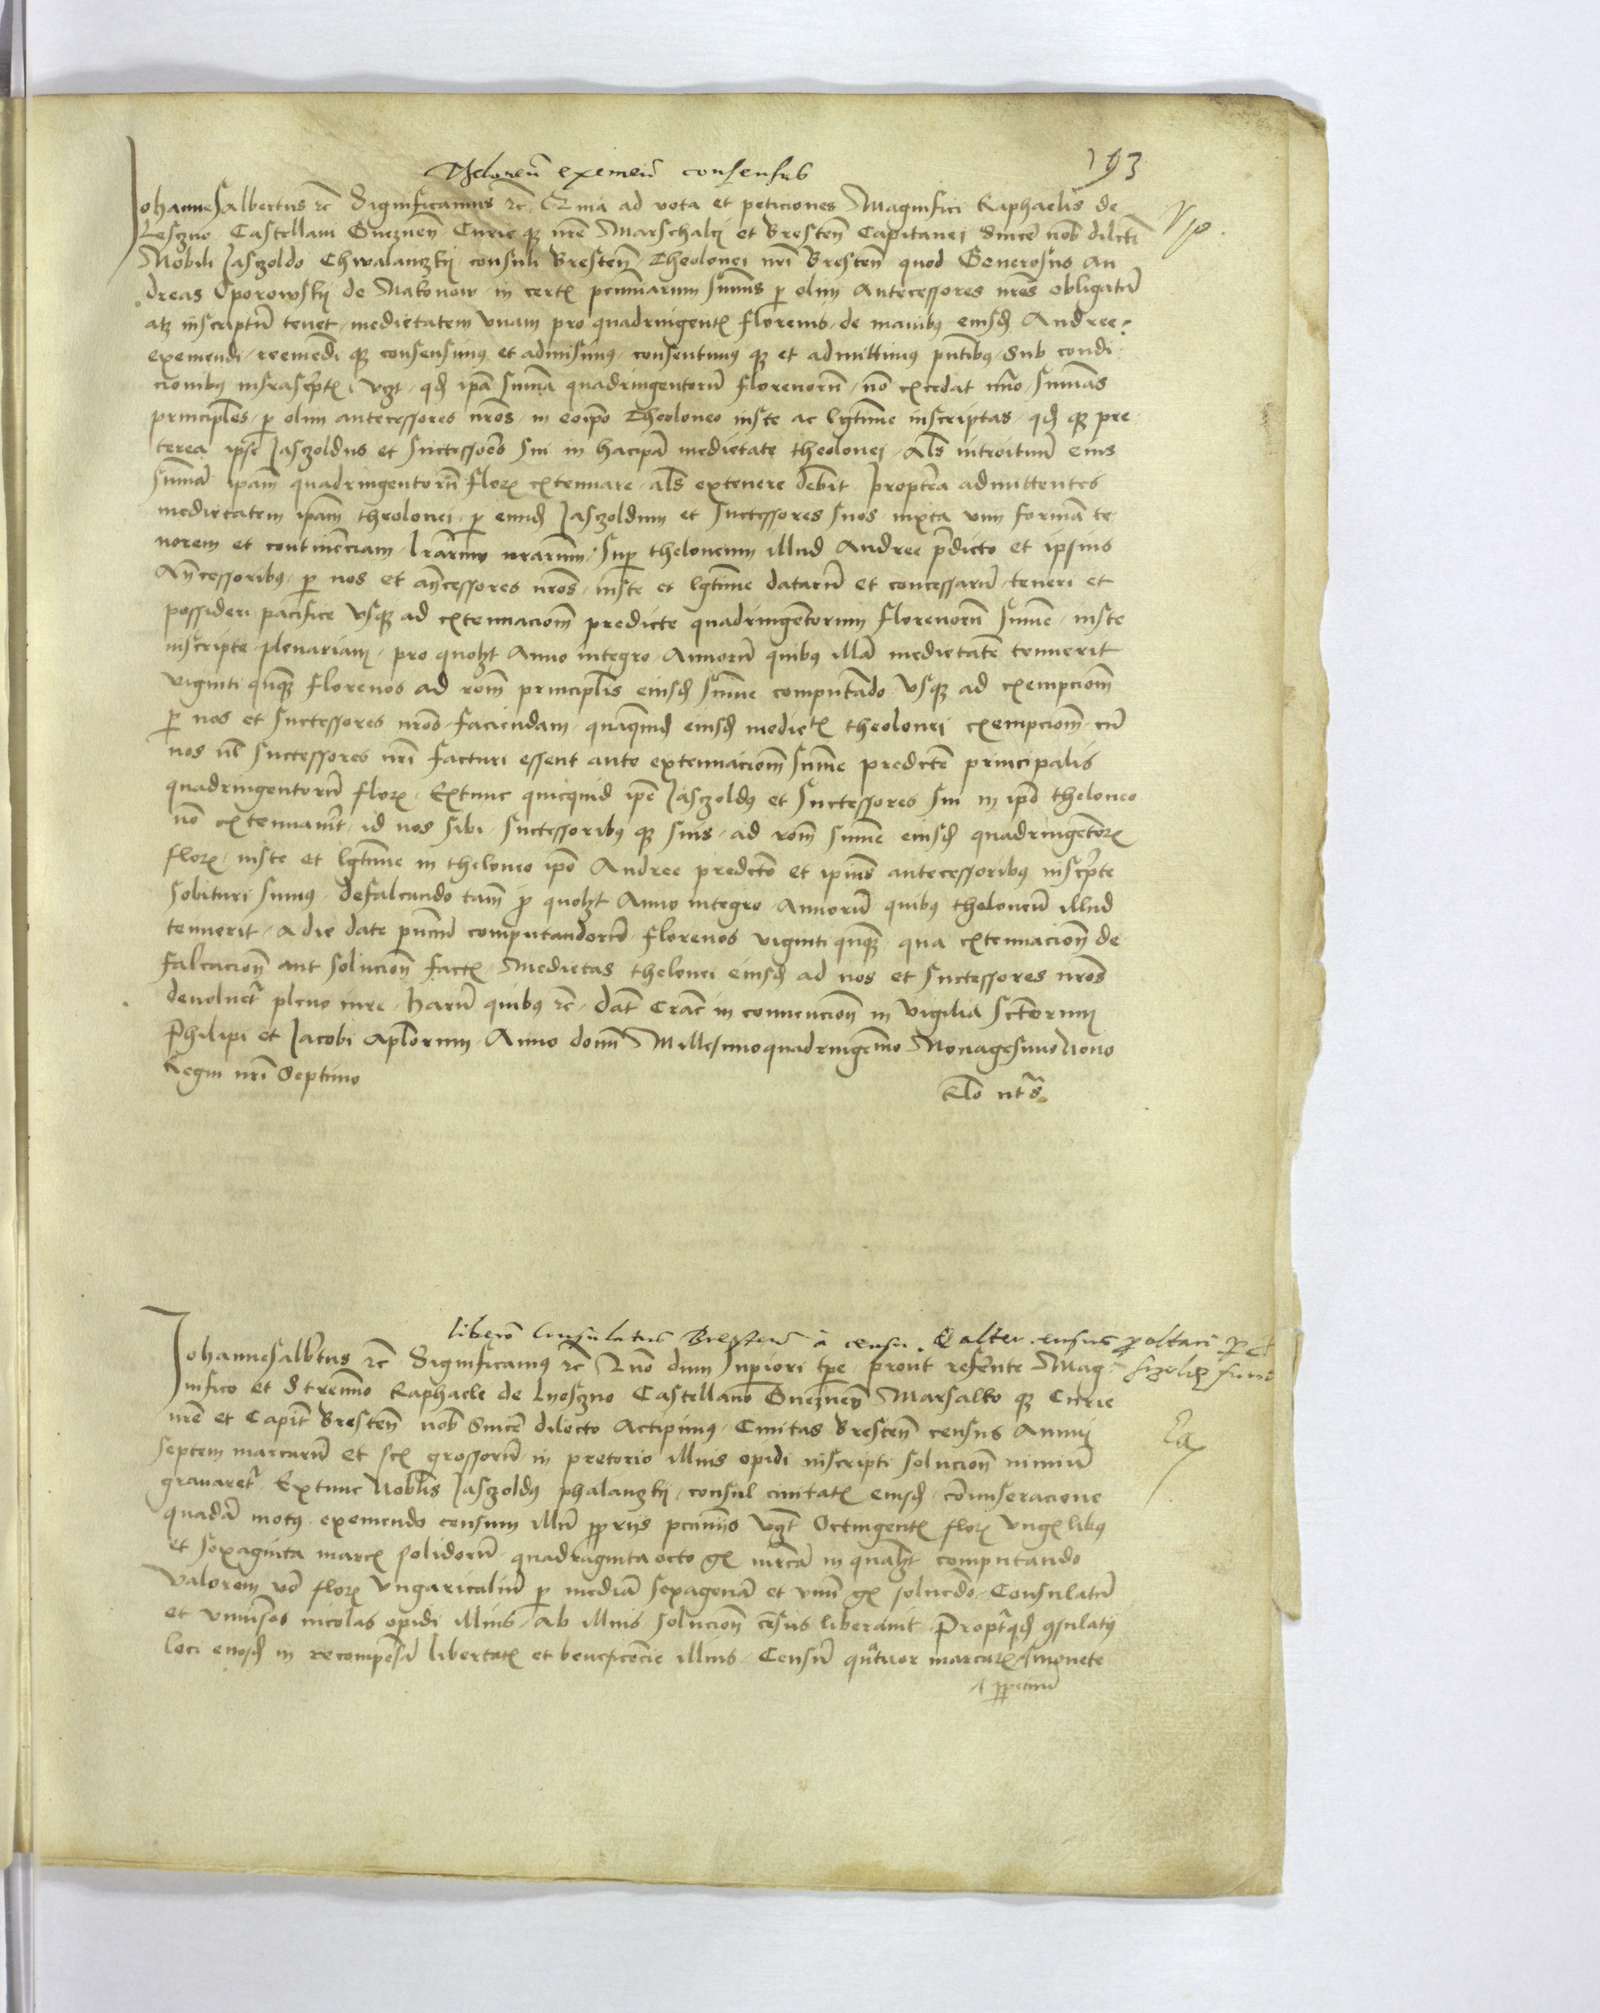 193
Theloneu exemen consensus
Johannesalbertus etc Significamus etc Quia ad vota et peticiones Magnifici Raphaelis de
Leszno Castellani Gneznen Curie que nre Marschalci et Bresten Capitanei Sincere nob dilecti
Nobili Jaszoldo Chwalanczkij consuli Bresten Theolonei nri Bresten quod Generosus An
dreas Oporowskij de Makonow in certis pecuniarum summis per olim Antecessores nros obligatu
atque inscriptu tenet medietatem vnam pro quadringentis florenis de manibus eiusdem Andree
exemendi reemendi que consensimus et admisimus consentimus que et admittimus pntibus Sub condi
cionibus infrascriptis vzt qd ipa suma quadringentoru florenoru no excedat imo sumas
principles per olim antecessores nros in eoipo Theoloneo iuste ac lgtime inscriptas qd que pre
terea ipse Jaszoldus et Successores sui in hacipa medietate theolonei Als introitum eius
sumam ipam quadringentoru flor extenuare als extenere debit Propterea admittentes
medietatem ipam theolonei per eund Jaszoldum et Successores suos iuxta vim formam te
norem et continenciam lrarum nrarum Super theloneum illud Andree pdicto et ipsius
Ancessoribus per nos et ancessores nros iuste et lgtime dataru et concessaru teneri et
possideri pacifice Vsque ad extenuaciom predicte quadringentorum florenoru sume iuste
inscripte plenariam pro quolzt Anno integro Annoru quibus illa medietate tenuerit
viginti quinque florenos ad rom principlis eiusd sume computando Vsque ad exempciom
per nos et Successores nros faciendam quamquid eiusd mediets theolonei exempciom cu
nos vel Successores nri facturi essent ante extenuaciom sume predicte principalis
quadringentoru flor Extunc quicquid ipe Jaszoldus et Successores sui in ipo theloneo
no extenuavit id nos sibi successoribus que suis ad rom sume eiusd quadringetor
flor iuste et lgtime in theloneo ipo Andree predicto et ipius antecessoribus inscripte
sobituri sumus defalcando tam pro quolzt Anno integro Annoru quibus theloneu illud
tenuerit a die date pncium computandoru florenos viginti quinque qua extenuacion de
falcacion aut solucion facta Medietas thelonei eiusd ad nos et Successores nros
devoluetur pleno iure Haru quibus etc dat Crac in convencion in vigilia Sctorum
Philipi et Jacobi Aplorum Anno domi Millesimoquadringemo Nonagesimo Nono
Regni nri Septimo
Rlo uts
libero Consulatus Bresten a censu
Johannesalbtus etc Significamus etc Quo dum Superiori tpe prout referente Mag
nifico et Strennuo Raphaele de Lyeszno Castellano Gneznen Marsalko que Curie
nre et Capit Bresten nob Sincere dilecto Accipimus Civitas Bresten census Annuj
septem marcaru et sex grossoru in pretorio illius opidi inscripti solucion nimiu
gravaretur Extunc Noblis Jaszoldus phalanczkij consul civitatis eiusd comiseracione
quadam motus exemendo censum illu ppriis pecunijs vzt Octingentis flor Vngaricalibus
et sexaginta marcis solidoru quadraginta octo gs mrca in qualzt computando
Valorem vero flor Vngaricaliu per mediam sexagenam et vnu gs soluendo Consulatu
et vniuersos incolas opidi illius ab illius solucion census liberavit Propterquod consulatus
loci eiusd in recompensa libertatis et beneficencie illius Censu quatuor marcarum monete
perpetuum